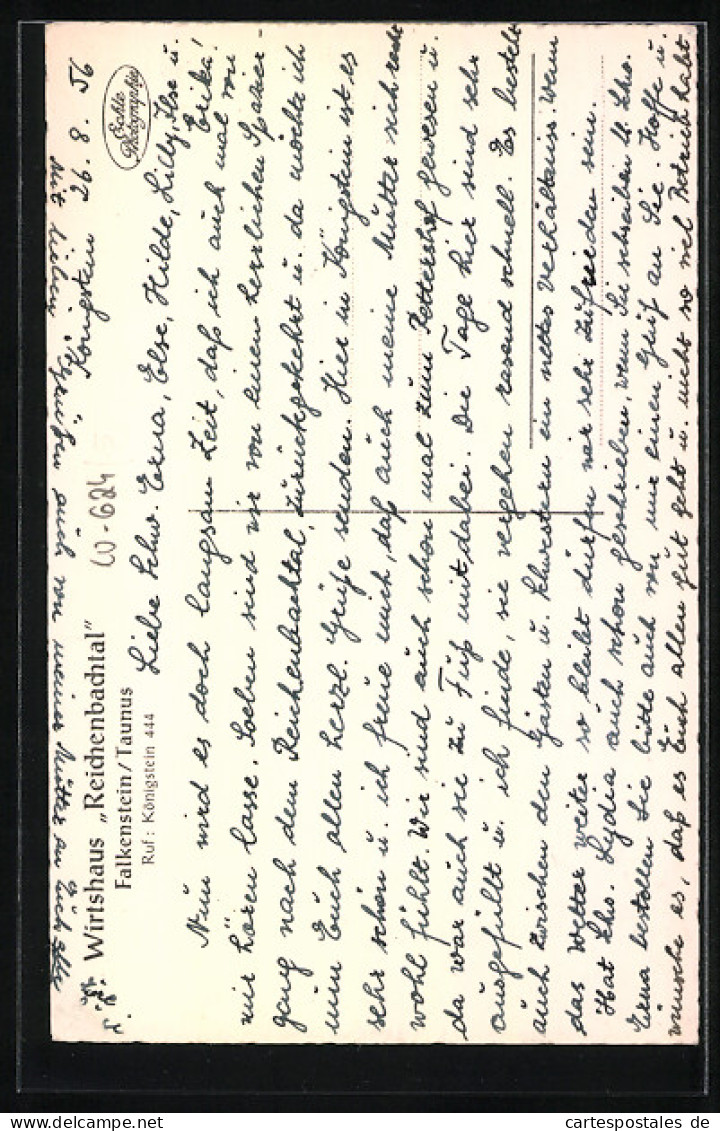 Königstein 26. 8. 56
Echte
Photographie
Wirtshaus „Reichenbachtal"
Falkenstein / Taunus
Ruf: Königstein 444
W-624
Liebe Schw. Erna, Else, Hilde, Lilly, Ilse u.
Erika!
Nun wird es doch langsam Zeit, daß ich auch mal von
mir hören lasse. Soeben sind wir von einem herrlichen Spazier-
gang nach dem Reichenbachtal, zurückgekehrt u. da möchte ich
nun Euch allen herzl. Grüße senden. Hier in Königstein ist es
sehr schön u. ich freue mich, daß auch meine Mutter sich recht
wohl fühlt. Wir sind auch schon mal zum Rettershof gewesen u.
da war auch sie zu Fuß mit dabei. Die Tage hier sind sehr
ausgefüllt u. ich finde, sie vergehen rasend schnell. Es besteht
auch zwischen den Gästen u. Schwestern ein nettes Verhältnis. Wenn
das Wetter weiter so bleibt dürfen wir sehr zufrieden sein.
Hat Schw. Lydia auch schon geschrieben, wenn Sie schreiben ll. Schw.
Erna bestellen Sie bitte auch von mir einen Gruß an Sie. Hoffe u.
wünsche es, daß es Euch allen gut geht u. nicht so viel Betrieb habt
Mit lieben Grüßen auch von meiner Mutter an Euch alle